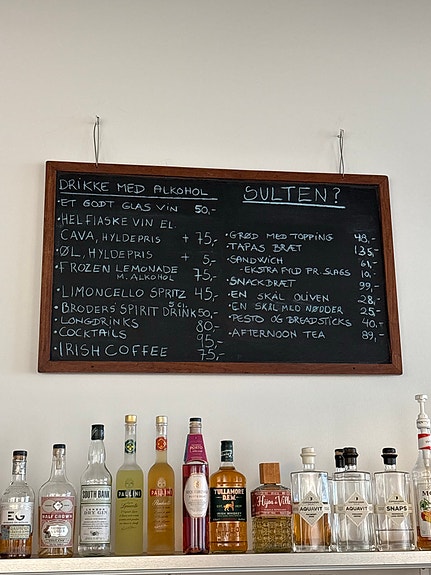 DRIKKE MED ALKOHOL
• ET GODT GLAS VIN 50,-
• HELFLASKE VIN EL.
CAVA, HYLDEPRIS + 75,-
• ØL, HYLDEPRIS + 5,-
• FROZEN LEMONADE 75,-
M. ALKOHOL
• LIMONCELLO SPRITZ 45,-
5 CL
• BRODERS' SPIRIT DRINK 50,-
• LONGDRINKS 80,-
• COCKTAILS 95,-
• IRISH COFFEE 75,-
SULTEN?
• GRØD MED TOPPING 48,-
• TAPAS BRÆT 135,-
• SANDWICH 61,-
- EKSTRA FYLD PR. SLAGS 10,-
• SNACKBRÆT 99,-
• EN SKÅL OLIVEN 28,-
• EN SKÅL MED NØDDER 25,-
• PESTO OG BREADSTICKS 40,-
• AFTERNOON TEA 89,-
EG
HALF CROWN
SOUTH BANK
LONDON
DRY GIN
PALLINI
Limoncello
PALLINI
TULLAMORE
D.E.W.
IRISH WHISKEY
AQUAVIT
AQUAVIT
SNAPS